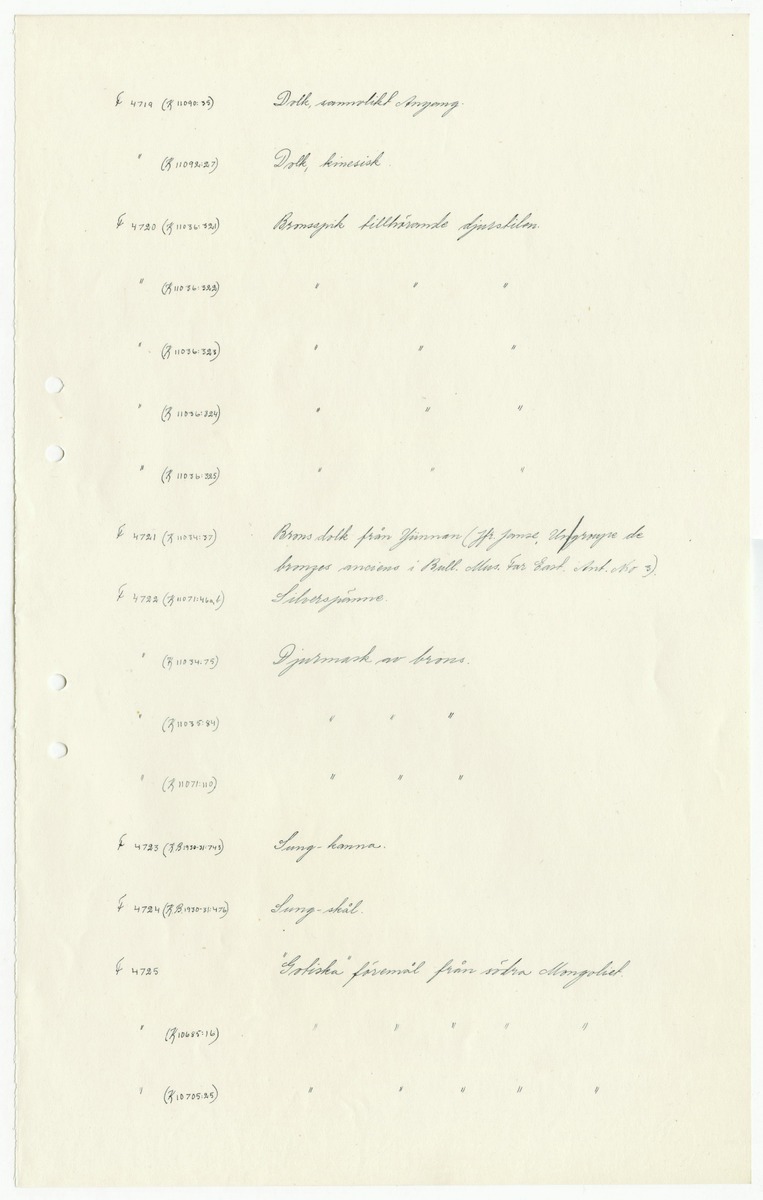 F 4719 (K 11090:35) Dolk, sannolikt Anyang.
" (K 11092:27) Dolk, kinesisk.
F 4720 (K 11036:321) Bronsspik tillhörande djurstilen.
" (K 11036:322) " " "
" (K 11036:323) " " "
" (K 11036:324) " " "
" (K 11036:325) " " "
F 4721 (K 11034:37) Brons dolk från Yünnan (Jfr Janse, Un groupe de
bronzes anciens i Bull. Mus. Far East. Ant. No 3).
F 4722 (K 11071:46a,b) Silverspänne.
" (K 11034:75) Djurmask av brons.
" (K 11035:84) " " "
" (K 11071:110) " " "
F 4723 (K B1930-31:743) Sung-kanna.
F 4724 (K B1930-31:476) Sung-skål.
F 4725 "Gotiska" föremål från södra Mongoliet.
" (K 10685:16) " " " " "
" (K 10705:25) " " " " "